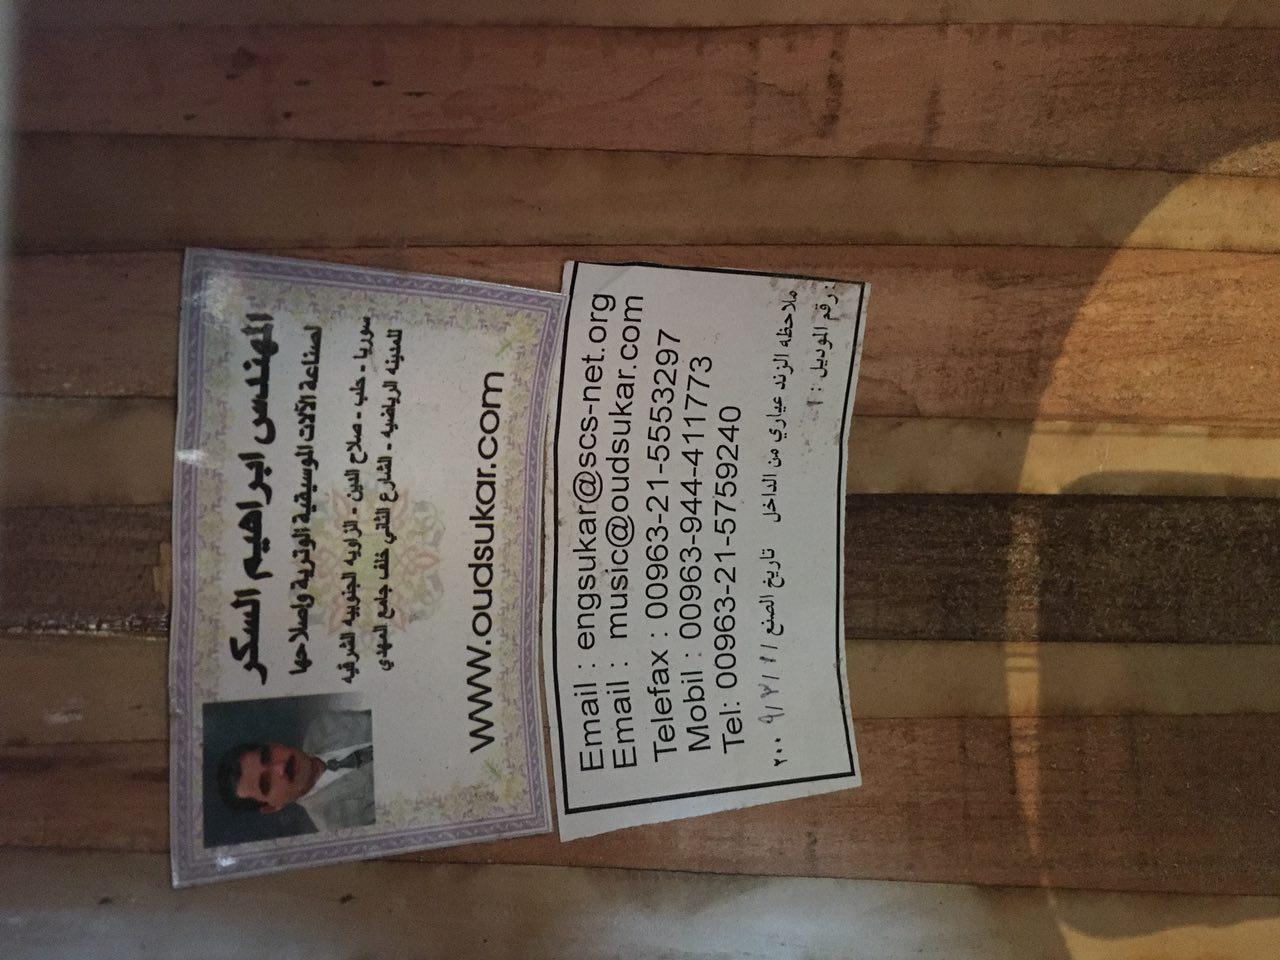 المهندس ابراهيم السكر
لصناعة الآلات الموسيقية الوترية واصلاحها
سوريا - حلب - صلاح الدين - الزاويه الجنوبيه الشرقيه
للمدينه الرياضيه - الشارع الثاني خلف جامع المهدي
www.oudsukar.com
Email : engsukar@scs-net.org
Email : music@oudsukar.com
Telefax : 00963-21-5553297
Mobil : 00963-944-411773
Tel: 00963-21-5759240
ملاحظه الزند عياري من الداخل تاريخ الصنع
رقم الموديل :